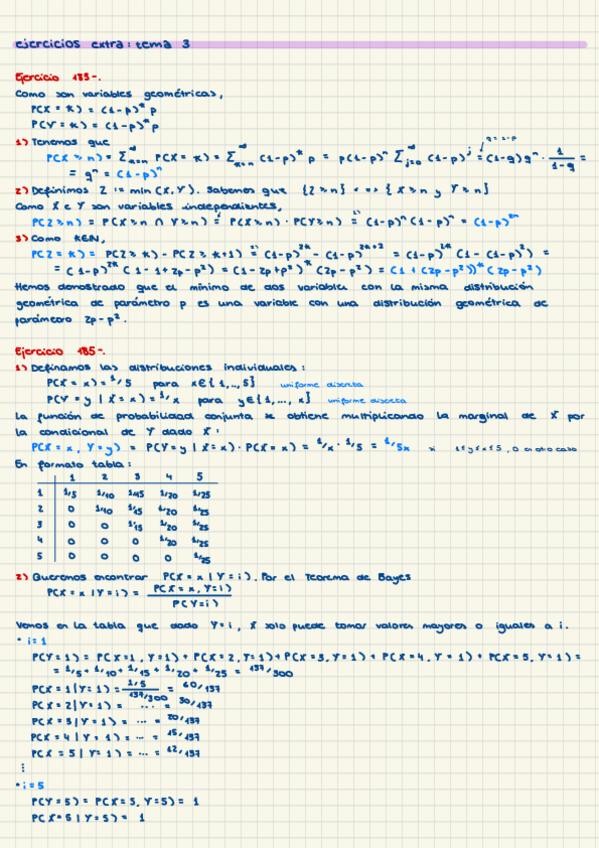 ejercicios extra: tema 3
Ejercicio 183-.
Como son variables geométricas,
P(X = k) = (1-p)^k p
P(Y = k) = (1-p)^k p
1) Tenemos que
q = 1-p
P(X ≥ n) = Σ_{k=n}^∞ P(X = k) = Σ_{k=n}^∞ (1-p)^k p = p(1-p)^n Σ_{j=0}^∞ (1-p)^j = (1-q) q^n · 1/(1-q) =
= q^n = (1-p)^n
2) Definimos Z := min(X, Y). Sabemos que {Z ≥ n} <=> {X ≥ n y Y ≥ n}
Como X e Y son variables independientes,
P(Z ≥ n) = P(X ≥ n ∩ Y ≥ n) = P(X ≥ n) · P(Y ≥ n) = (1-p)^n (1-p)^n = (1-p)^{2n}
3) Como k∈N,
P(Z = k) = P(Z ≥ k) - P(Z ≥ k+1) = (1-p)^{2k} - (1-p)^{2k+2} = (1-p)^{2k} (1 - (1-p)^2) =
= (1-p)^{2k} (1 - 1 + 2p - p²) = (1 - 2p + p²)^k (2p - p²) = (1 + (2p - p²))^k (2p - p²)
Hemos demostrado que el mínimo de dos variables con la misma distribución
geométrica de parámetro p es una variable con una distribución geométrica de
parámetro 2p - p².
Ejercicio 185-.
1) Definamos las distribuciones individuales:
P(X = x) = 1/5 para x∈{1,..,5} uniforme discreta
P(Y = y | X = x) = 1/x para y∈{1,..., x} uniforme discreta
La función de probabilidad conjunta se obtiene multiplicando la marginal de X por
la condicional de Y dado X:
P(X = x, Y = y) = P(Y = y | X = x) · P(X = x) = 1/x · 1/5 = 1/5x si 1≤y≤x≤5, 0 en otro caso
En formato tabla:
1 2 3 4 5
1 1/5 1/10 1/15 1/20 1/25
2 0 1/10 1/15 1/20 1/25
3 0 0 1/15 1/20 1/25
4 0 0 0 1/20 1/25
5 0 0 0 0 1/25
2) Queremos encontrar P(X = x | Y = i). Por el Teorema de Bayes
P(X = x | Y = i) = P(X = x, Y = i) / P(Y = i)
Vemos en la tabla que dado Y = i, X solo puede tomar valores mayores o iguales a i.
• i = 1
P(Y = 1) = P(X = 1, Y = 1) + P(X = 2, Y = 1) + P(X = 3, Y = 1) + P(X = 4, Y = 1) + P(X = 5, Y = 1) =
= 1/5 + 1/10 + 1/15 + 1/20 + 1/25 = 137/300
P(X = 1 | Y = 1) = (1/5)/(137/300) = 60/137
P(X = 2 | Y = 1) = ... = 30/137
P(X = 3 | Y = 1) = ... = 20/137
P(X = 4 | Y = 1) = ... = 15/137
P(X = 5 | Y = 1) = ... = 12/137
⋮
• i = 5
P(Y = 5) = P(X = 5, Y = 5) = 1
P(X = 5 | Y = 5) = 1